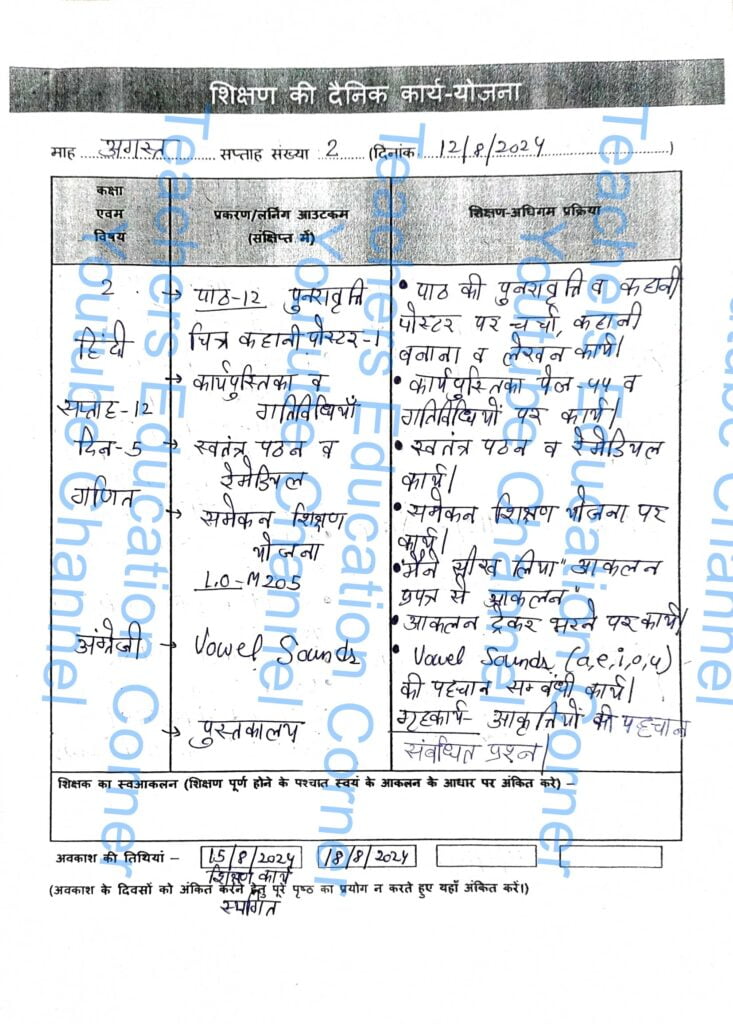 शिक्षण की दैनिक कार्य-योजना
माह .... अगस्त .... सप्ताह संख्या 2 .... (दिनांक .... 12/8/2024 ....)
कक्षा
एवम
विषय
प्रकरण/लर्निंग आउटकम
(संक्षिप्त में)
शिक्षण-अधिगम प्रक्रिया
2
हिंदी
सप्ताह-12
दिन-5
→ पाठ-12 पुनरावृत्ति
चित्र कहानी पोस्टर-1
→ कार्यपुस्तिका व
गतिविधियाँ
→ स्वतंत्र पठन व
रेमेडियल
• पाठ की पुनरावृत्ति व कहानी
पोस्टर पर चर्चा, कहानी
बनाना व लेखन कार्य।
• कार्यपुस्तिका पेज-55 व
गतिविधियों पर कार्य।
• स्वतंत्र पठन व रेमेडियल
कार्य।
गणित
→ समेकन शिक्षण
योजना
L.O-M205
• समेकन शिक्षण योजना पर
कार्य।
• "मैंने सीख लिया" आकलन
प्रपत्र से आकलन"
• आकलन ट्रेकर भरने पर कार्य।
अंग्रेजी
→ Vowel Sounds
• Vowel Sounds (a,e,i,o,u)
की पहचान सम्बंधी कार्य।
→ पुस्तकालय
गृहकार्य- आकृतियों की पहचान
संबंधित प्रश्न।
शिक्षक का स्वआकलन (शिक्षण पूर्ण होने के पश्चात स्वयं के आकलन के आधार पर अंकित करे) –
अवकाश की तिथियां – 15/8/2024 18/8/2024
शिक्षण कार्य
स्थगित
(अवकाश के दिवसों को अंकित करने हेतु पूरे पृष्ठ का प्रयोग न करते हुए यहाँ अंकित करें।)
Teachers Education Corner
Youtube Channel
Teachers Education Corner
Youtube Channel
Teachers Education Corner
Youtube Channel